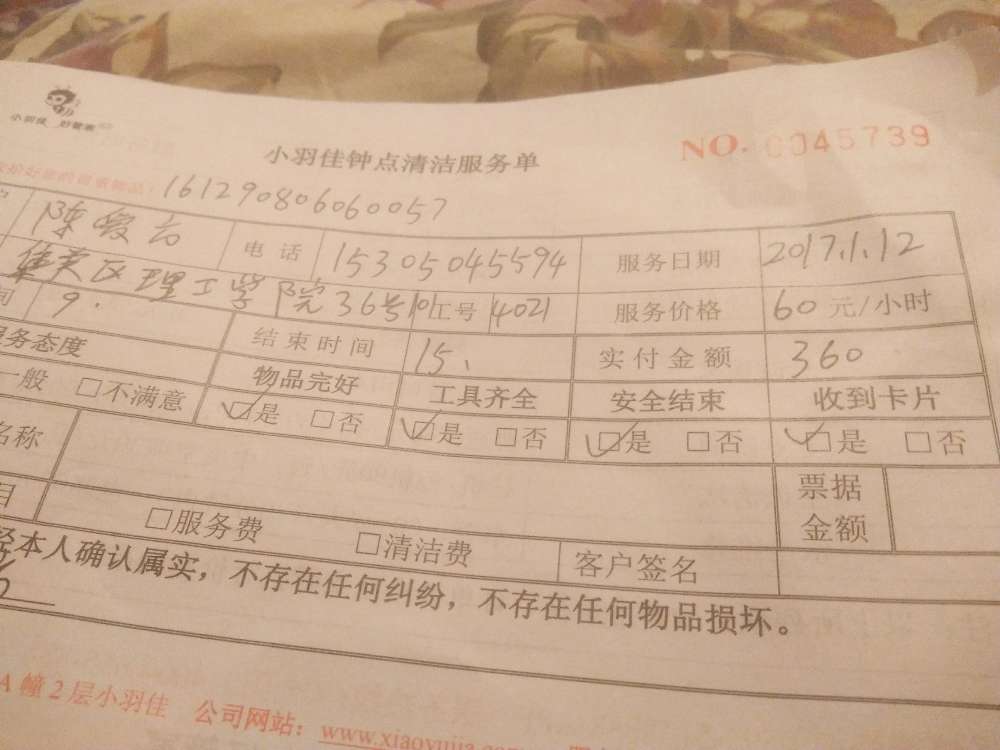 小羽佳 好管家
小羽佳钟点清洁服务单 NO. 0045739
161290806060057
电话 15305045594 服务日期 2017.1.12
集美区理工学院36号101 工号 4021 服务价格 60元/小时
间 9. 结束时间 15. 实付金额 360
服务态度 物品完好 工具齐全 安全结束 收到卡片
一般 □不满意 ☑是 □否 ☑是 □否 ☑是 □否 ☑是 □否
名称 票据金额
目 □服务费 □清洁费 客户签名
经本人确认属实，不存在任何纠纷，不存在任何物品损坏。
A幢2层小羽佳 公司网站：www.xiaoyujia.com